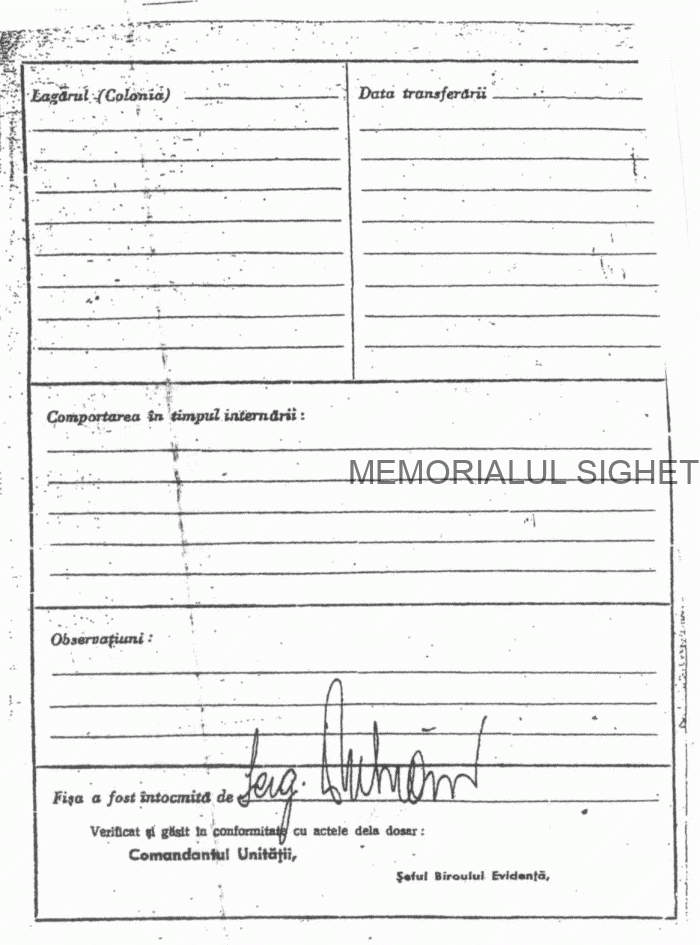 Lagărul (Colonia)
Data transferării
Comportarea în timpul internării :
MEMORIALUL SIGHET
Observațiuni :
Fișa a fost întocmită de Serg.
Verificat și găsit în conformitate cu actele dela dosar :
Comandantul Unității,
Șeful Biroului Evidență,